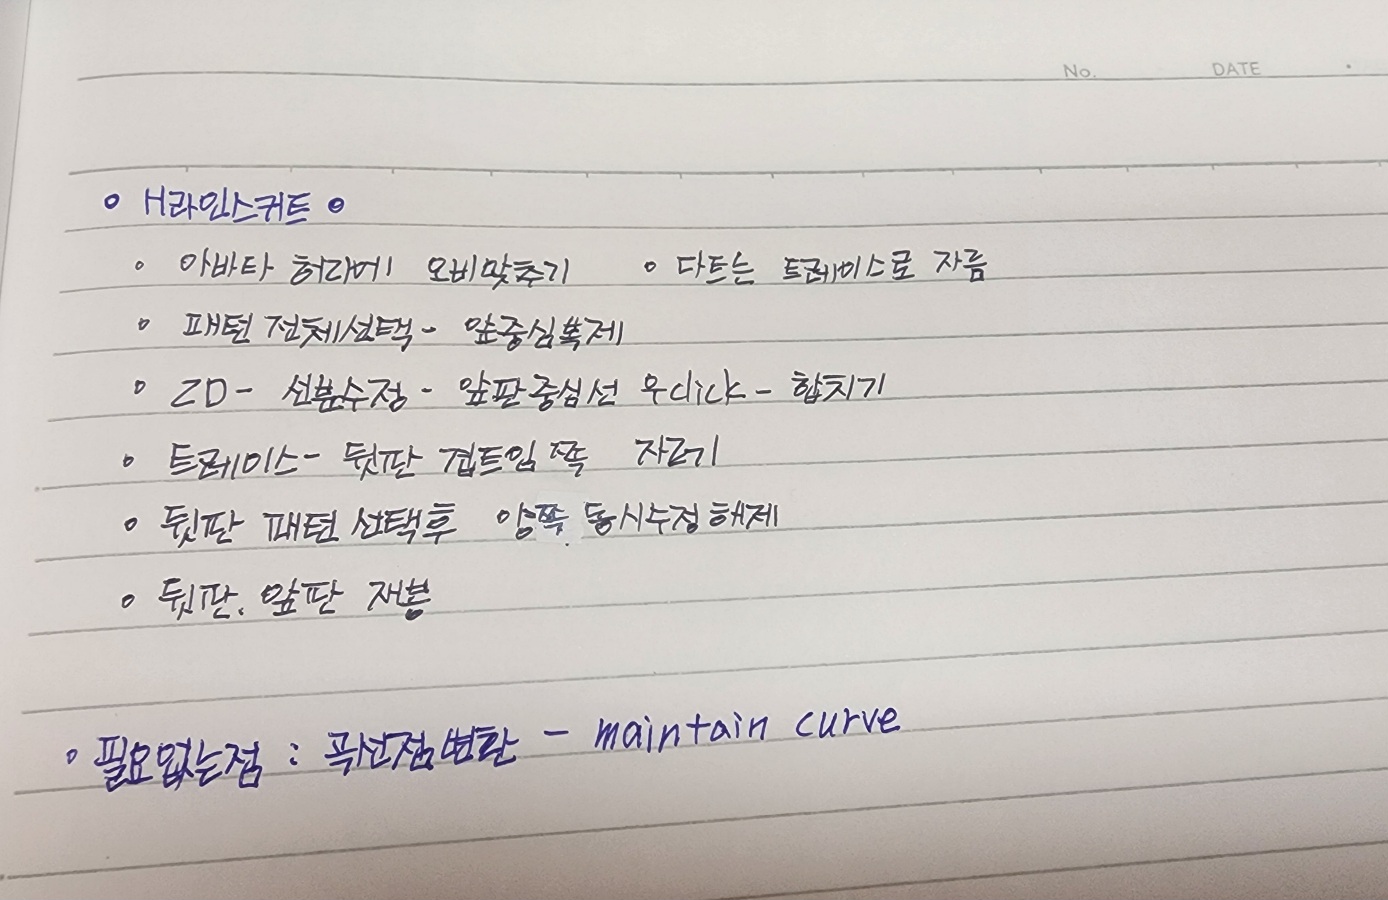 No. DATE
○ H라인스커트 ○
○ 아바타 허리에 오비맞추기 ○ 다트는 트레이스로 자름
○ 패턴 전체선택 - 앞중심복제
○ 2D - 선분수정 - 앞판중심선 우click - 합치기
○ 트레이스 - 뒷판 겹트임 쪽 자르기
○ 뒷판 패턴 선택후 양쪽 동시수정해제
○ 뒷판. 앞판 재봉
○ 필요없는점 : 곡선점변환 - maintain curve